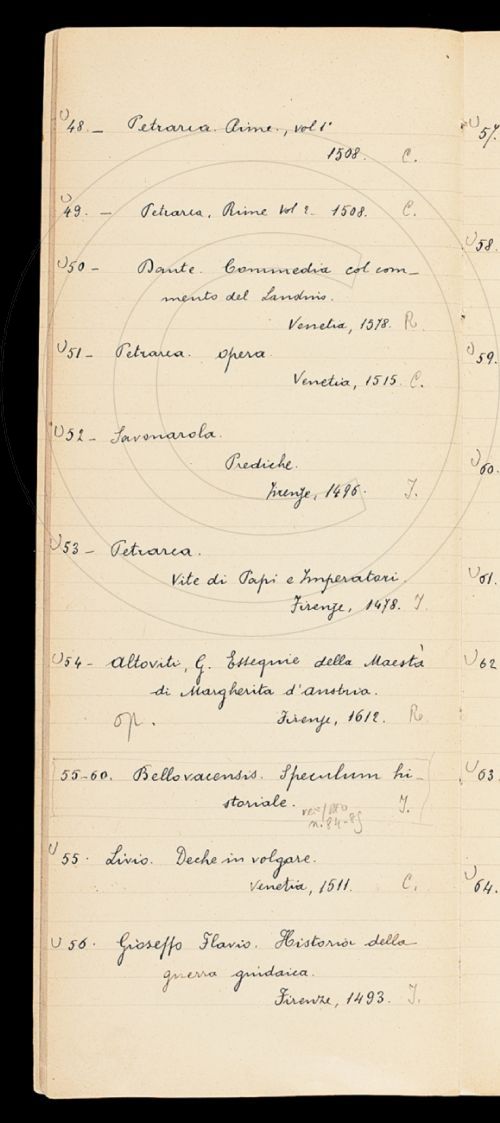 48. – Petrarca. Rime., vol 1º
1508. C.
49. – Petrarca, Rime vol 2. 1508. C.
50 – Dante. Commedia col com-
mento del Landino.
Venetia, 1578. R.
51 – Petrarca. opera.
Venetia, 1515. C.
52 – Savonarola.
Prediche.
Firenze, 1496. I.
53 – Petrarca.
Vite di Papi e Imperatori.
Firenze, 1478. I.
54 – Altoviti, G. Essequie della Maestà
di Margherita d'Austria.
op. Firenze, 1612. R.
55-60. Bellovacensis. Speculum hi-
storiale. I.
n. 84-89
55. Livio. Deche in volgare.
Venetia, 1511. C.
56. Gioseffo Flavio. Historia della
guerra giudaica.
Firenze, 1493. I.
57.
58.
59.
60.
61.
62
63
64.